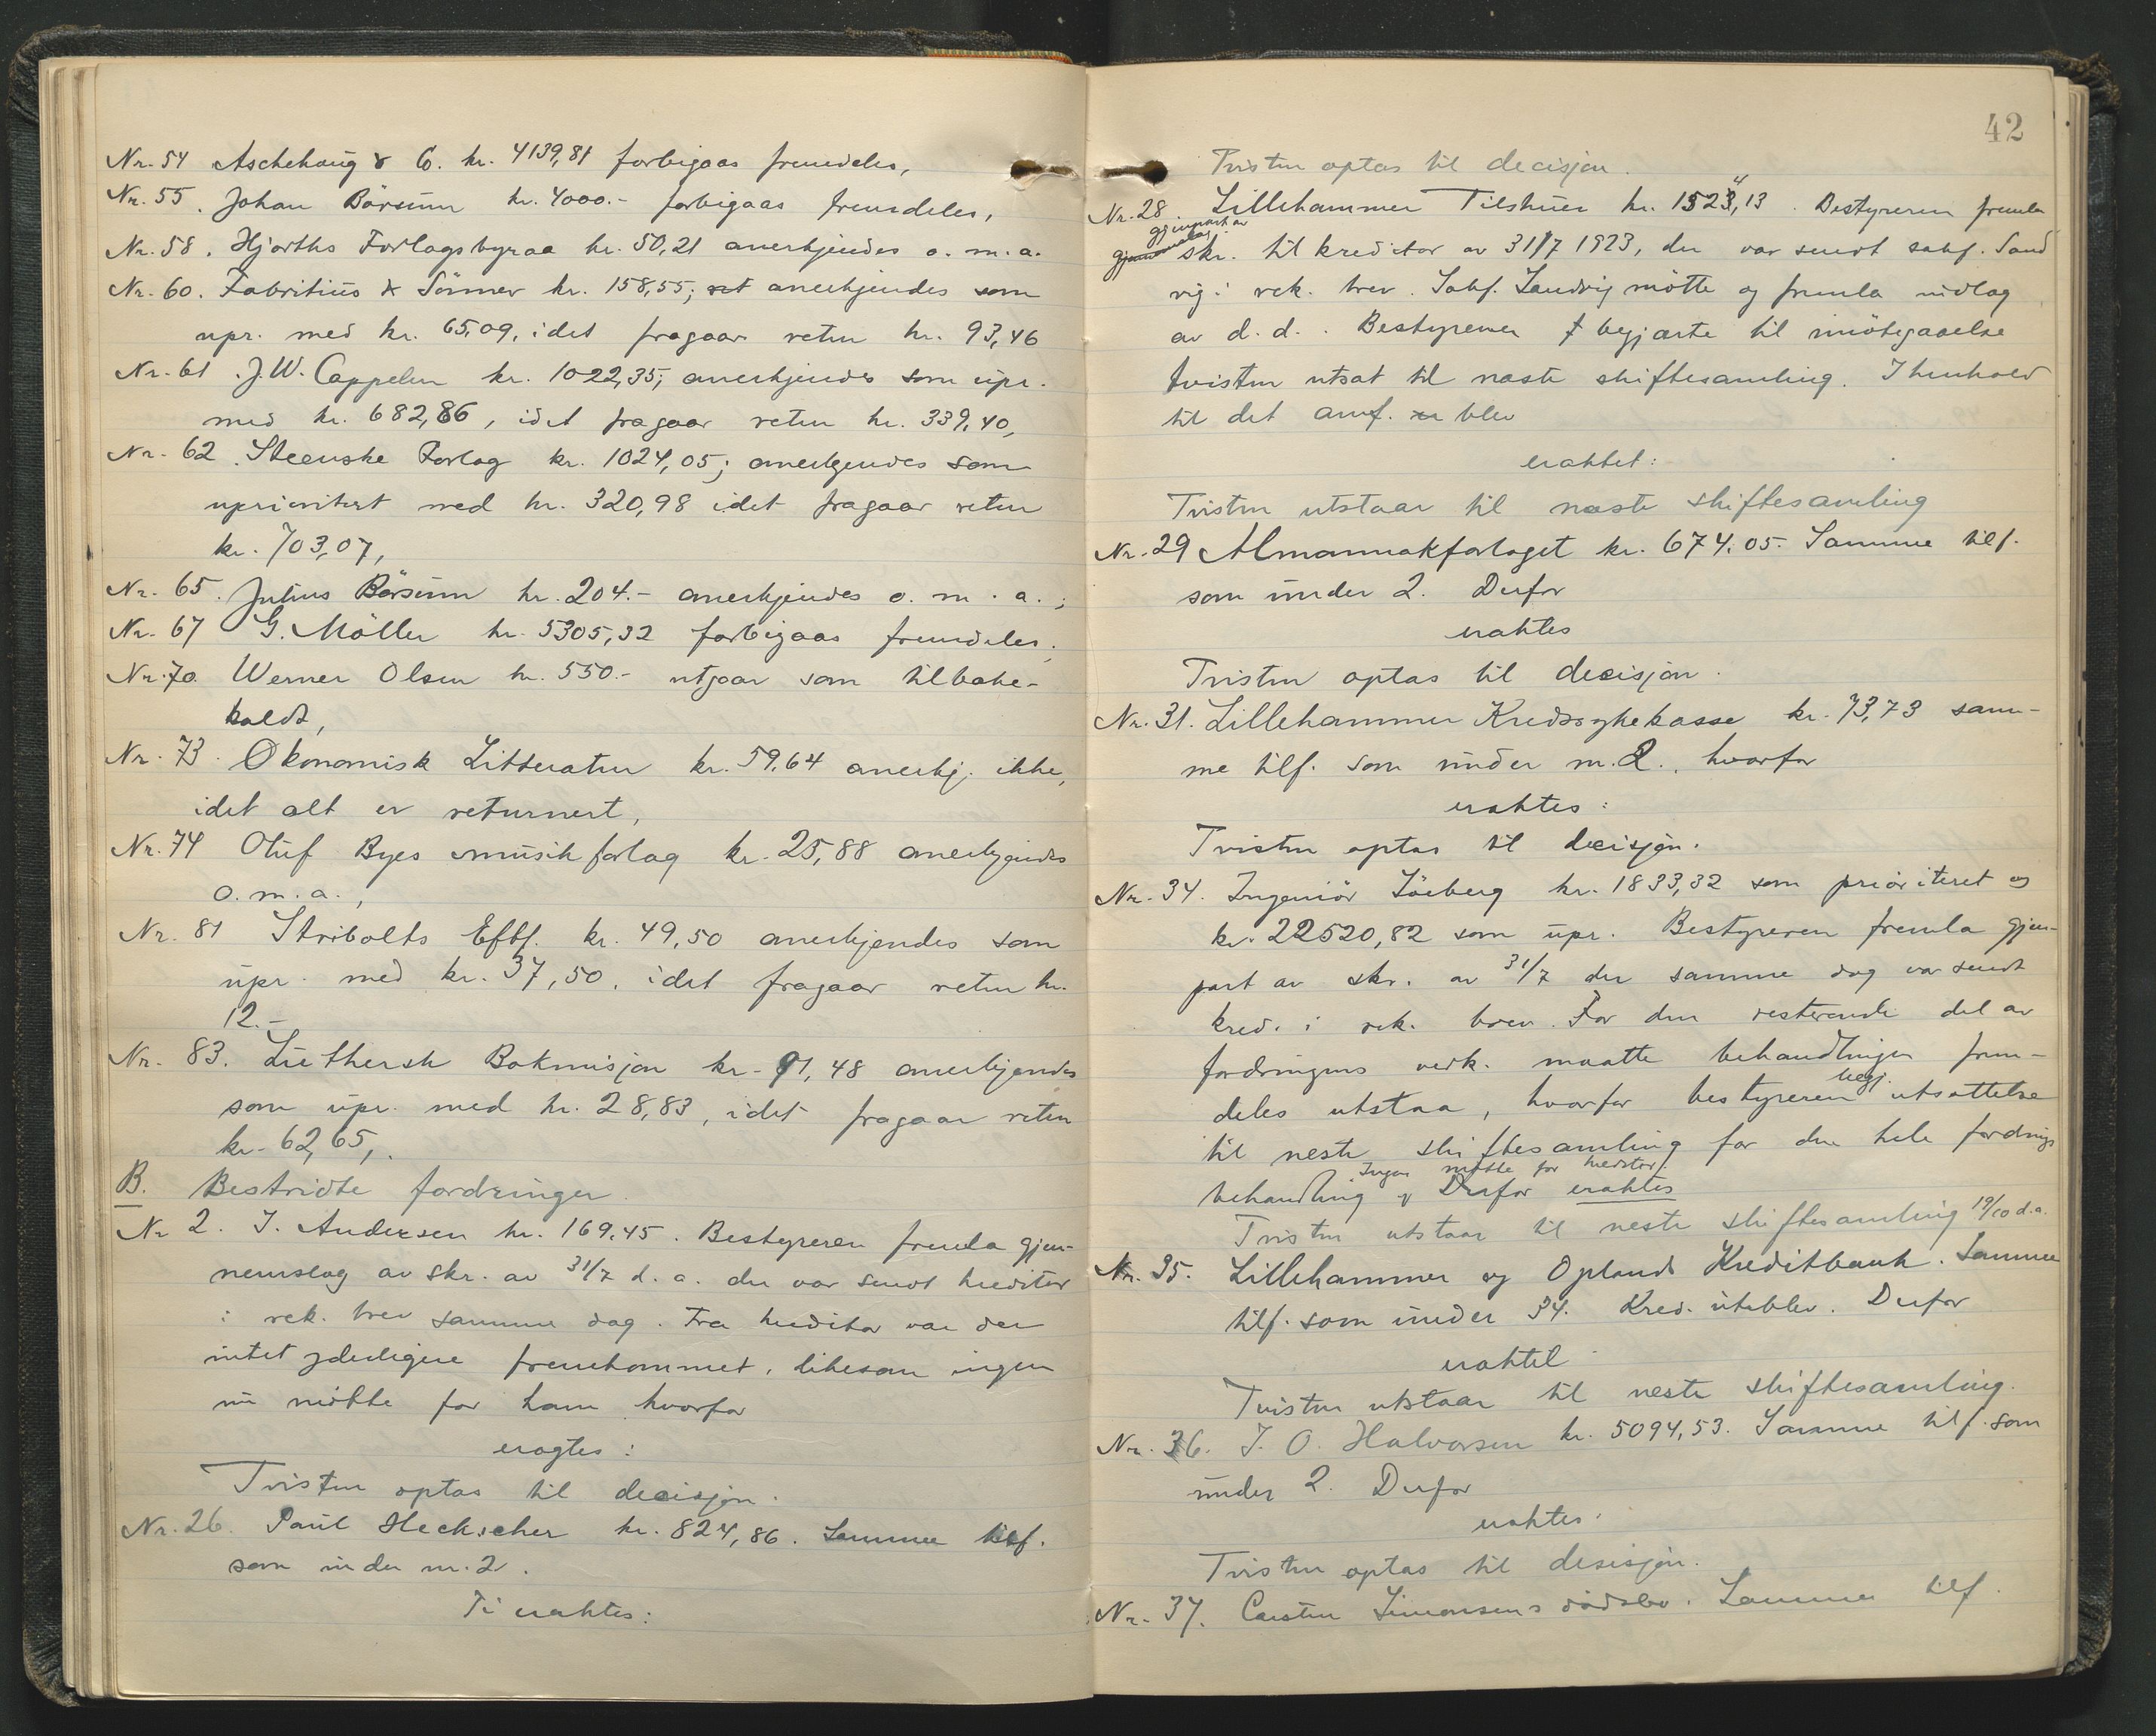 Nr. 54 Aschehoug & Co. kr. 4139,81 forbigaas fremdeles,
Nr. 55. Johan Börsum kr. 4000.- forbigaas fremdeles,
Nr. 58. Hjorths Forlagsbyraa kr. 50,21 anerkjendes o. m. a.
Nr. 60. Fabritius & Sönner kr. 158,55; anerkjendes som
upr. med kr. 65,09, idet fragaar retur kr. 93,46
Nr. 61. J. W. Cappelen kr. 1022,35; anerkjendes som upr.
med kr. 682,86, idet fragaar retur kr. 339,40,
Nr. 62. Steenske Forlag kr. 1024,05; anerkjendes som
uprioritert med kr. 320,98 idet fragaar retur
kr. 703,07,
Nr. 65. Julius Börsum kr. 204.- anerkjendes o. m. a.;
Nr. 67 G. Möller kr. 5305,32 forbigaas fremdeles.
Nr. 70. Werner Olsen kr. 550.- utgaar som tilbake-
kaldt,
Nr. 73. Økonomisk Litteratur kr. 59,64 anerkj. ikke,
idet alt er returnert,
Nr. 74 Oluf Byes musikforlag kr. 25,88 anerkjendes
o. m. a.,
Nr. 81 Stribolts Eftf. kr. 49,50 anerkjendes som
upr. med kr. 37,50, idet fragaar retur kr.
12.-
Nr. 83. Luthersk Bokmisjon kr. 91,48 anerkjendes
som upr. med kr. 28,83, idet fragaar retur
kr. 62,65,.
B. Bestridte fordringer.
Nr 2. J. Andersen kr. 169,45. Bestyreren fremla gjen-
nemslag av skr. av 31/7 d. a. der var sendt kreditor
i rek. brev samme dag. Fra kreditor var der
intet yderligere fremkommet, likesom ingen
nu mötte for ham hvorfor
eragtes:
Tvisten optas til decisjon.
Nr. 26. Paul Heckscher kr. 824,86. Samme tilf.
som under nr. 2.
Ti eraktes:
42
Tvisten optas til decisjon.
4
Nr. 28. Lillehammer Tilskuer kr. 1523,13. Bestyreren fremla
gjenpart av
gjennemslag skr. til kreditor av 31/7 1923, der var sendt sakf. Sand
vig i rek. brev. Sakf. Sandvig mötte og fremla indlæg
av d. d. Bestyreren begjærte til imötegaaelse
tvisten utsat til næste skiftesamling. I henhold
til det anf. blev
eraktet:
Tvisten utstaar til næste skiftesamling
Nr. 29 Almanakforlaget kr. 674.05. Samme tilf.
som under 2. Derfor
eraktes
Tvisten optas til decisjon.
Nr. 31. Lillehammer Kredssykekasse kr. 73,73 sam-
me tilf. som under nr. 2., hvorfor
eraktes:
Tvisten optas til decisjon.
Nr. 34. Ingeniör Söeberg kr. 1833,32 som prioriteret og
kr. 22520,82 som upr. Bestyreren fremla gjen-
part av skr. av 31/7 der samme dag var sendt
kred. i rek. brev. For den resterende del av
fordringens verk. maatte behandlingen frem-
begj.
deles utstaa, hvorfor bestyreren utsættelse
til neste skiftesamling for den hele fordrings
Ingen mötte for kreditor.
behandling. Derfor eraktes
Tvisten utstaar til neste skiftesamling 19/10 d.a.
Nr. 35. Lillehammer og Oplands Kreditbank. Samme
tilf. som under 34. Kred. uteblev. Derfor
eraktet
Tvisten utstaar til neste skiftesamling.
Nr. 36. J. O. Halvorsen kr. 5094,53. Samme tilf. som
under 2. Derfor
eraktes:
Tvisten optas til desisjon.
Nr. 37. Carsten Simonsens dödsbo. Samme tilf.